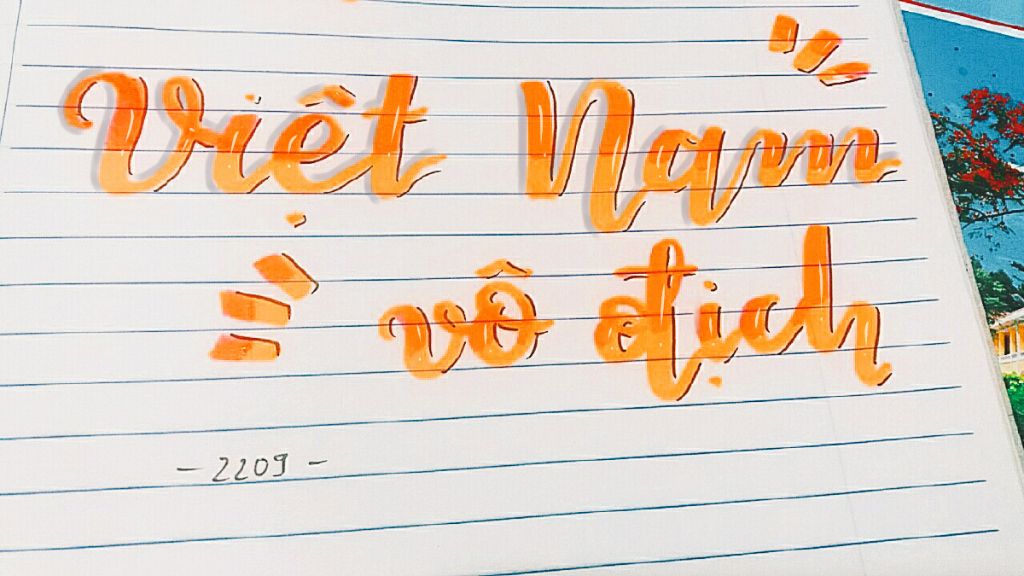 Việt Nam
vô địch
- 2209 -